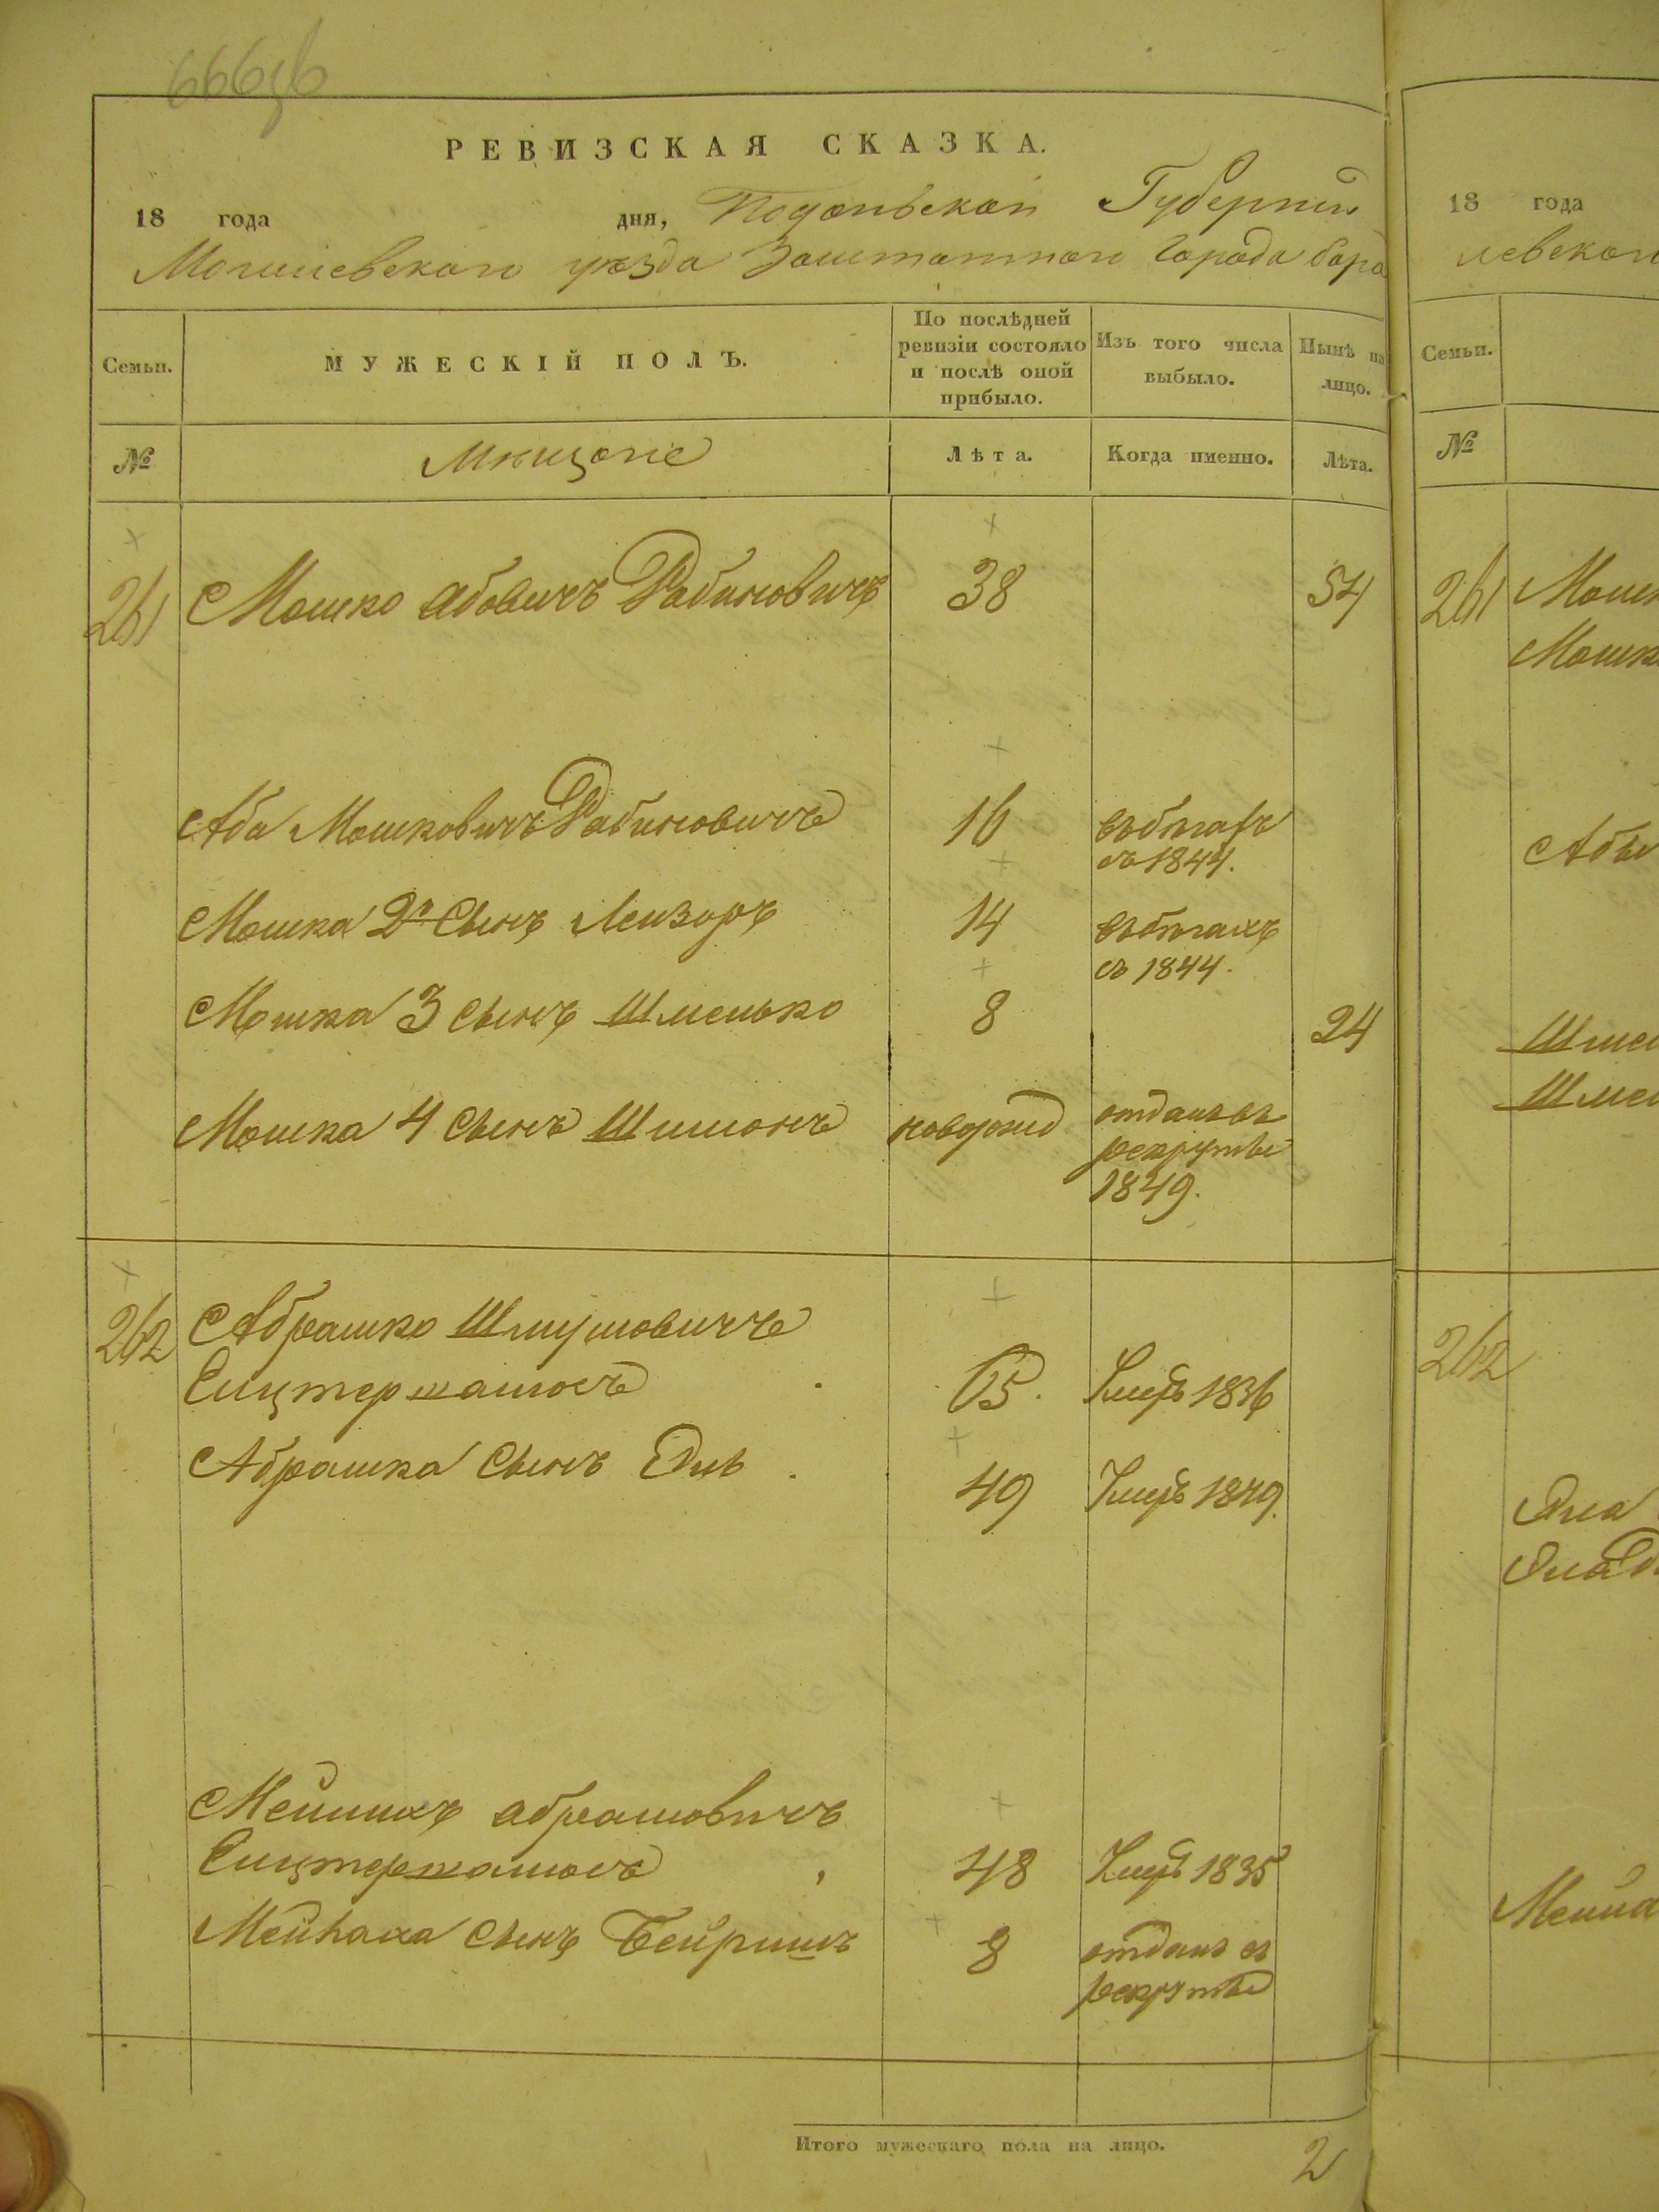 666
РЕВИЗСКАЯ СКАЗКА.
18 года дня, Подольской Губернии
Могилевскаго уѣзда Заштатнаго Города бара
Семьи. МУЖЕСКІЙ ПОЛЪ. По послѣдней ревизіи состояло и послѣ оной прибыло. Изъ того числа выбыло. Нынѣ на лицо.
№ Мѣщане Лѣта. Когда именно. Лѣта.
261 Мошко абовичъ Рабиновичъ 38 54
Аба Мошковичъ Рабиновичъ 16 въ бѣгахъ
съ 1844.
Мошка 2й Сынъ Лейзоръ 14 въ бѣгахъ
съ 1844.
Мошка 3 сынъ Шмелько 8 24
Мошка 4 сынъ Шимонъ новорожд отданъ въ
рекруты
1849.
262 Абрашко Шмулевичъ
65. Умеръ 1836
Абрашка Сынъ Эль 49 Умеръ 1849.
абрамовичъ
48 Умеръ 1835
сынъ Бейришъ 8 отданъ въ
рекруты
Итого мужескаго пола на лицо. 2
18 года
левскаго
Семьи.
№
261 Мошк
Мошк
Абы
Шмел
Шмел
262